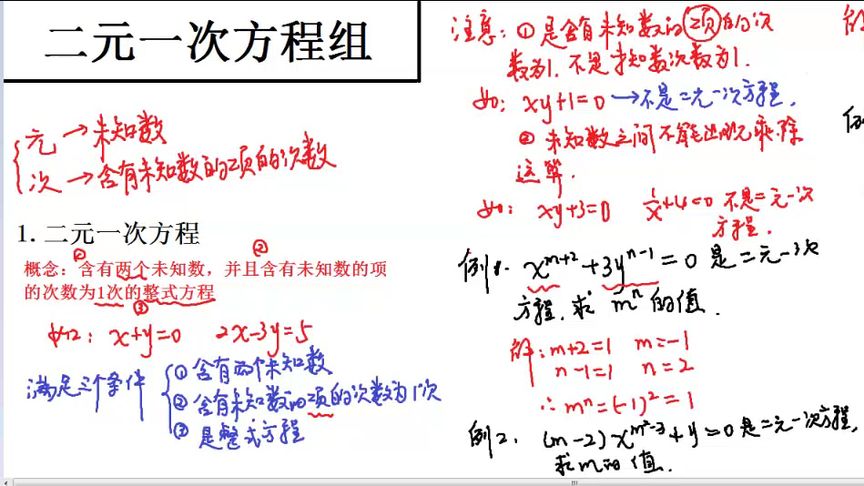 二元一次方程组
元→未知数
次→含有未知数的项的次数
1. 二元一次方程
① ②
概念：含有两个未知数，并且含有未知数的项
的次数为1次的整式方程
③
如: x+y=0 2x-3y=5
满足三个条件
①含有两个未知数
②含有未知数的项的次数为1次
③是整式方程
注意: ①是含有未知数的项的次
数为1. 不是未知数次数为1.
如: xy+1=0 →不是二元一次方程.
②未知数之间不能出现乘.除
运算.
如: xy+3=0 1/x+4=0 不是二元一次
方程.
例1. x^{m+2}+3y^{n-1}=0是二元一次
方程.求 m^n 的值.
解: m+2=1 m=-1
n-1=1 n=2
∴m^n=(-1)^2=1
例2. (m-2)x^{m²-3}+y=0是二元一次方程,
求m的值.
例